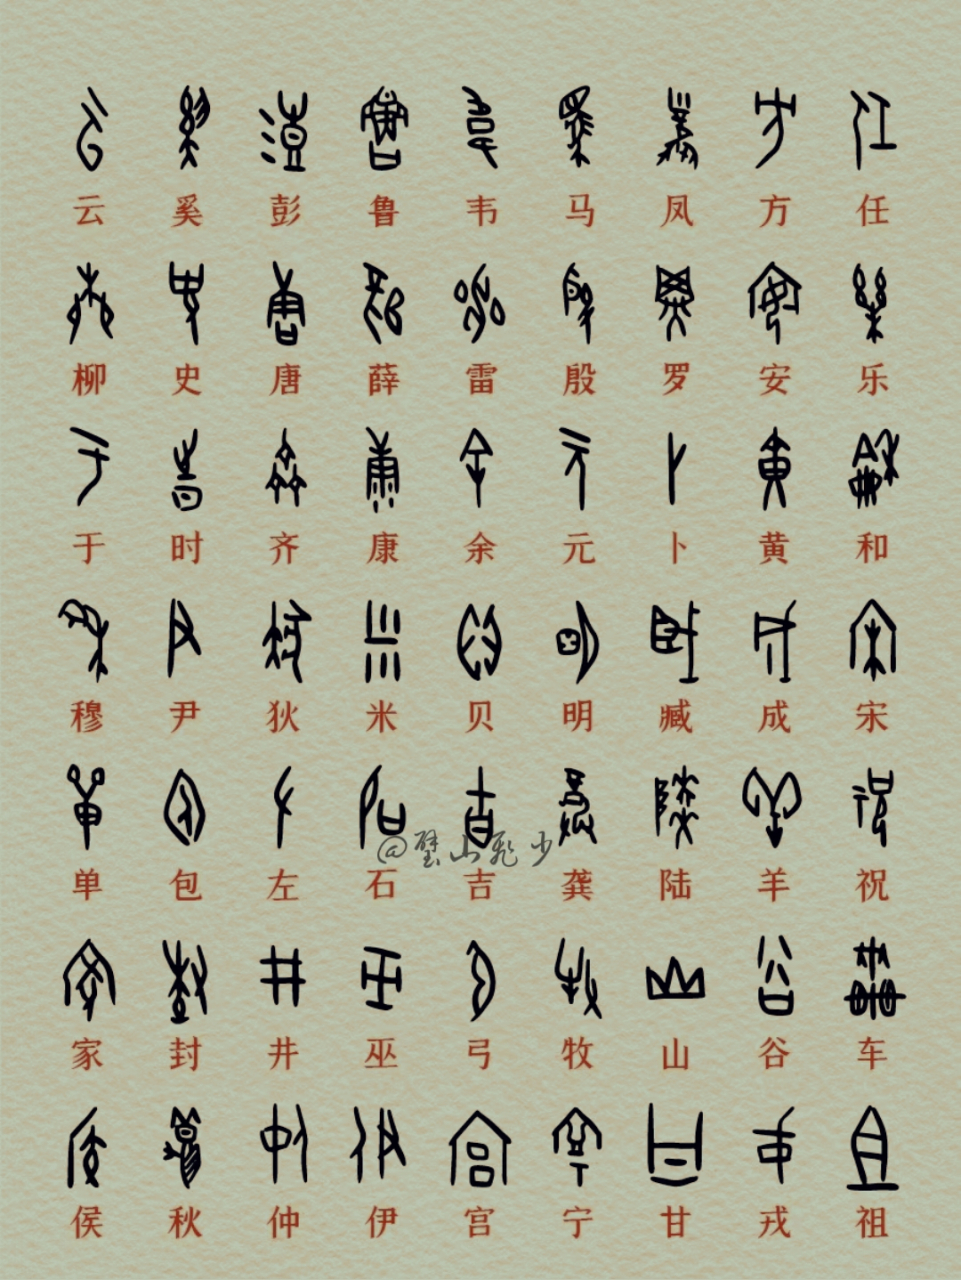 云 奚 彭 鲁 韦 马 凤 方 任
柳 史 唐 薛 雷 殷 罗 安 乐
于 时 齐 康 余 元 卜 黄 和
穆 尹 狄 米 贝 明 臧 成 宋
单 包 左 石 吉 龚 陆 羊 祝
@璧山飞少
家 封 井 巫 弓 牧 山 谷 车
侯 秋 仲 伊 宫 宁 甘 戎 祖